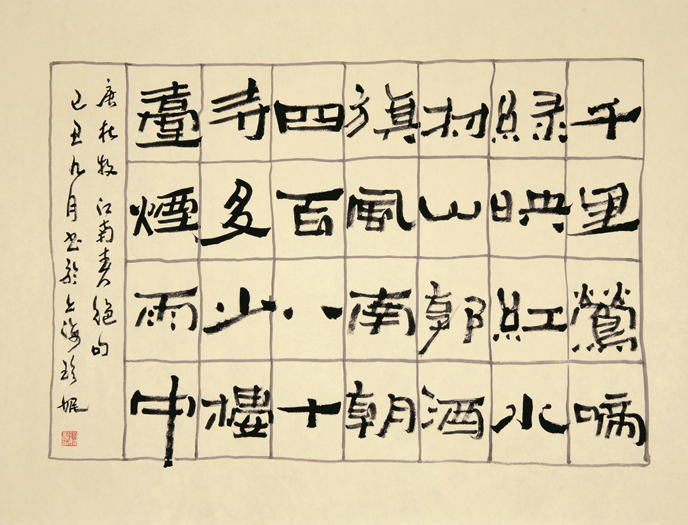 千里鶯啼
綠映紅水
村山郭酒
旗風南朝
四百八十
寺多少樓
臺煙雨中
唐杜牧 江南春絕句
己丑九月書於上海珍